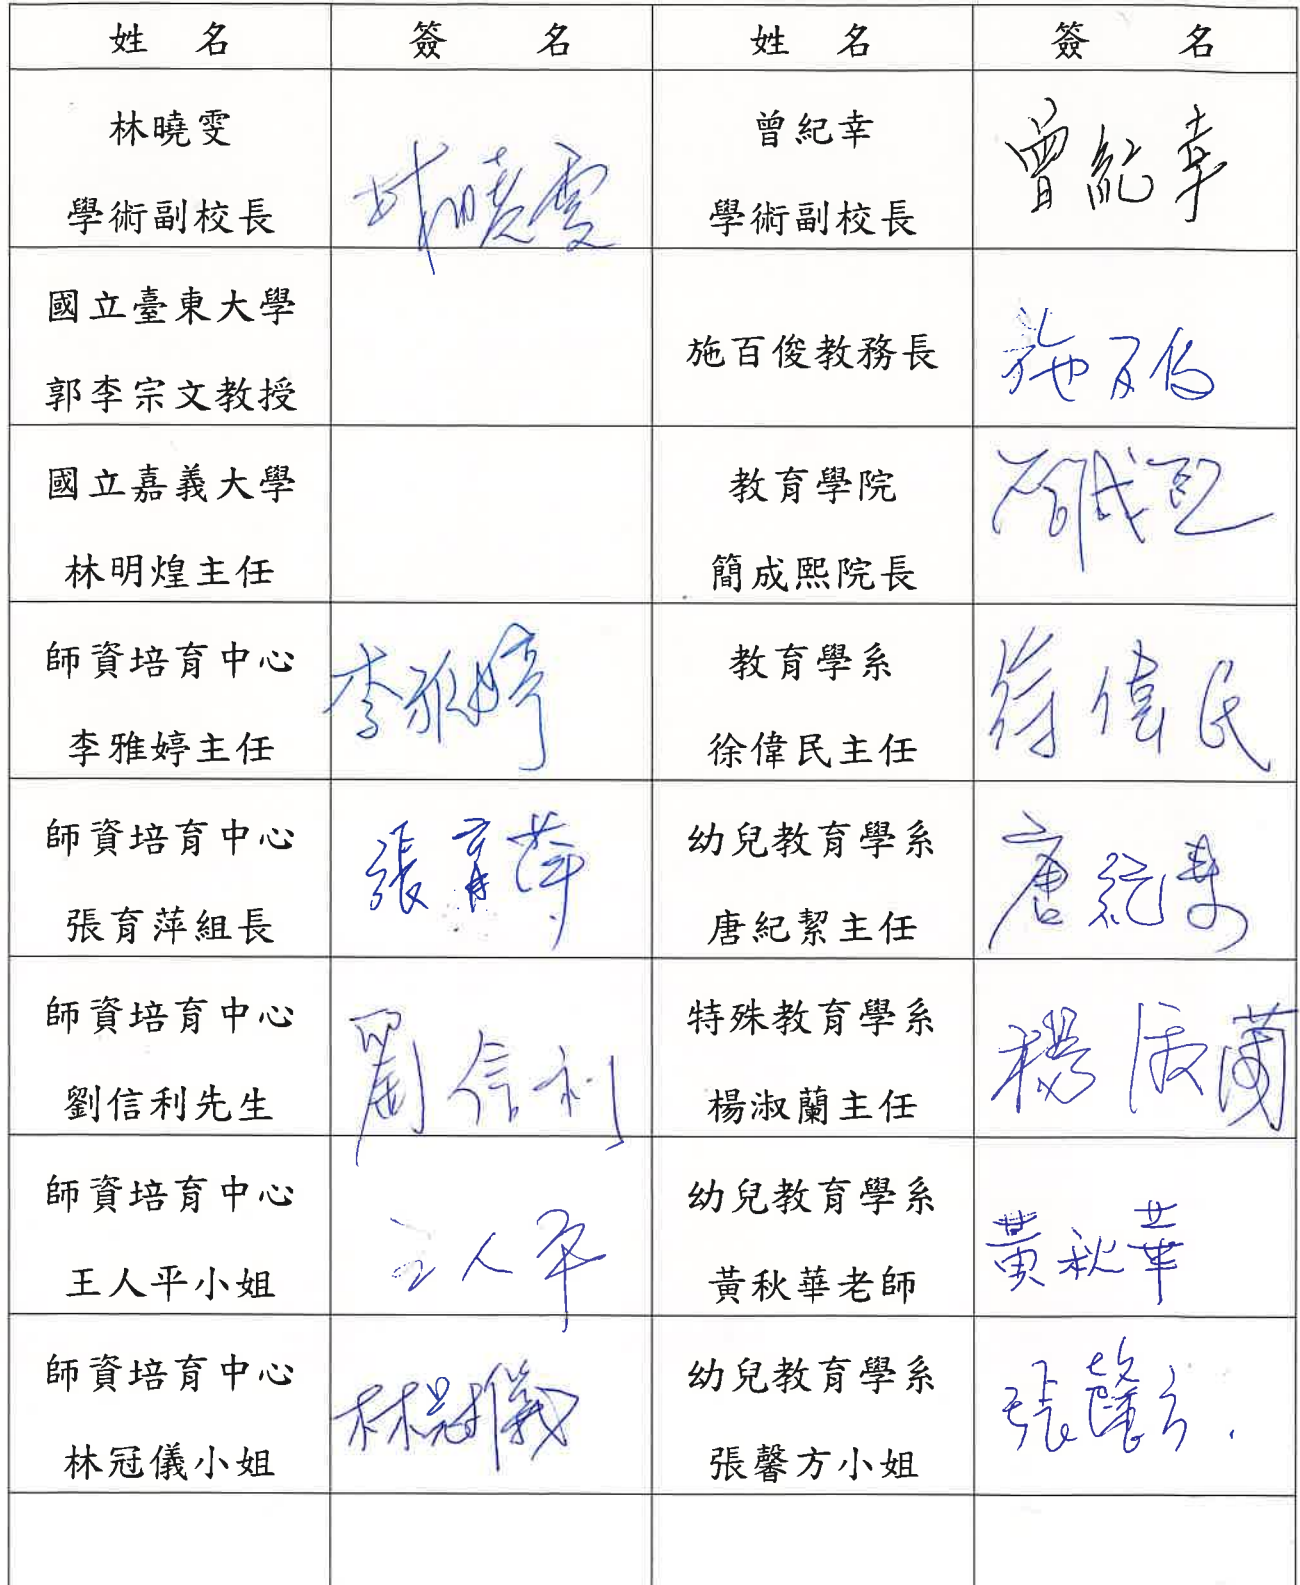 姓 名 簽 名 姓 名 簽 名
林曉雯
學術副校長
林曉雯
曾紀幸
學術副校長
曾紀幸
國立臺東大學
郭李宗文教授
施百俊教務長
施百俊
國立嘉義大學
林明煌主任
教育學院
簡成熙院長
簡成熙
師資培育中心
李雅婷主任
李雅婷
教育學系
徐偉民主任
徐偉民
師資培育中心
張育萍組長
張育萍
幼兒教育學系
唐紀絜主任
唐紀絜
師資培育中心
劉信利先生
劉信利
特殊教育學系
楊淑蘭主任
楊淑蘭
師資培育中心
王人平小姐
王人平
幼兒教育學系
黃秋華老師
黃秋華
師資培育中心
林冠儀小姐
林冠儀
幼兒教育學系
張馨方小姐
張馨方